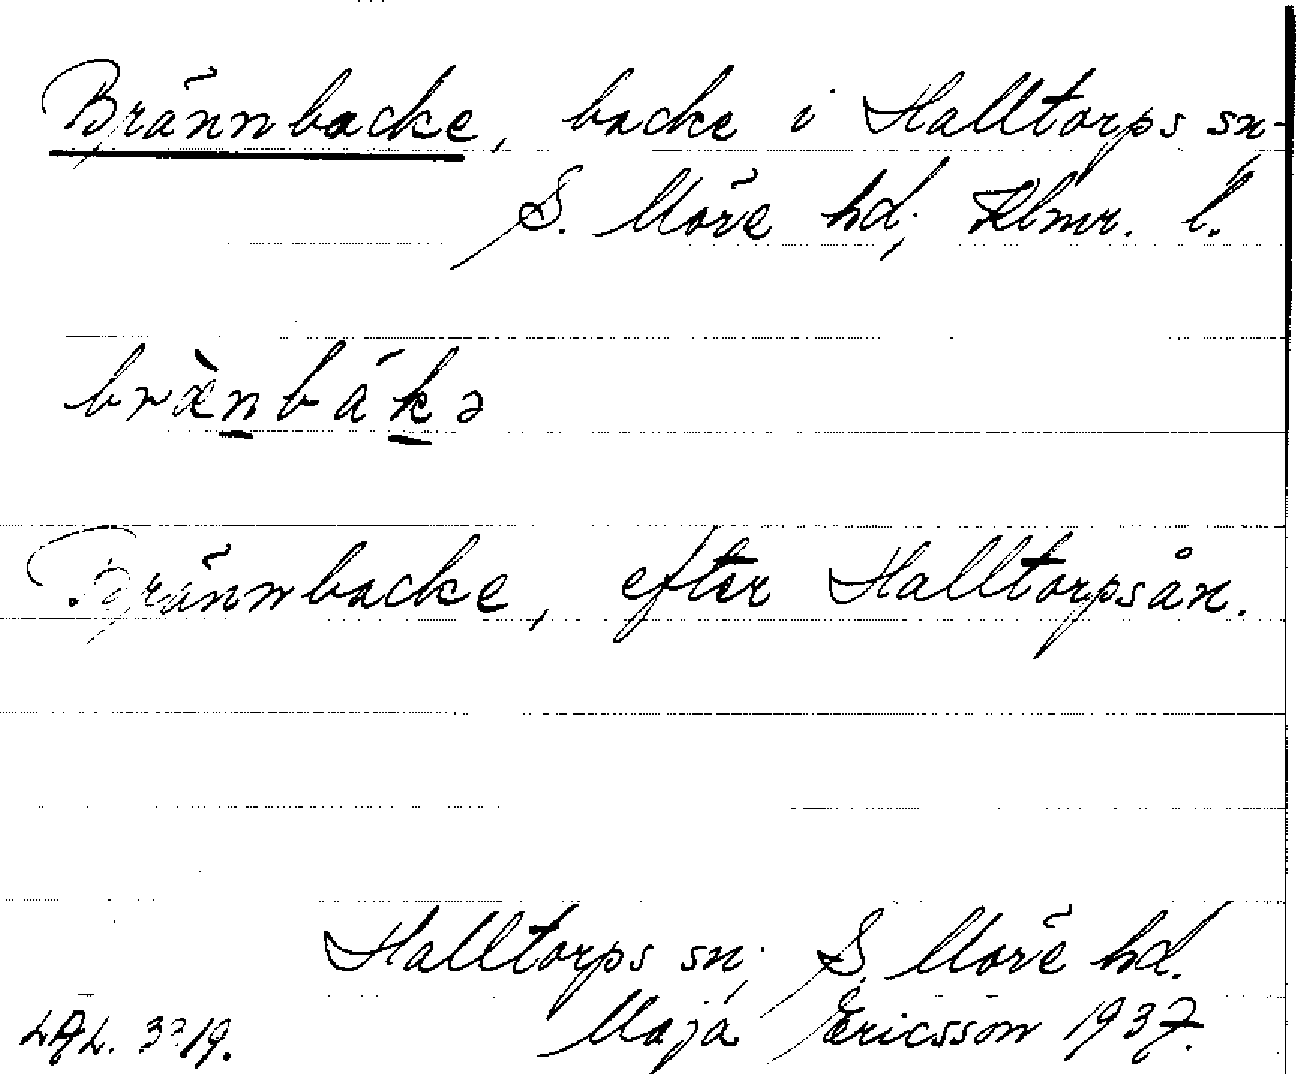 Brännbacke, backe i Halltorps sn,
S. Möre hd, Klmr. l.
brænbakə
Brännbacke, efter Halltorpsån.
Halltorps sn, S. Möre hd.
Maja Ericsson 1937.